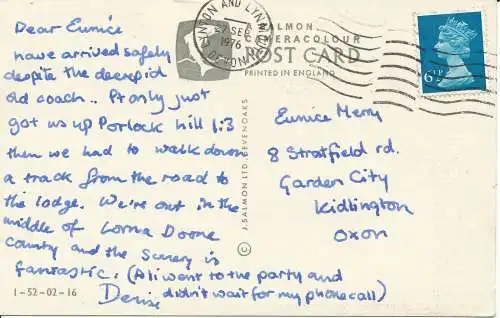 Dear Eunice
have arrived safely
despite the decrepid
old coach.. It only just
got us up Porlock hill 1:3
then we had to walk down
a track from the road to
the lodge. We're out in the
middle of Lorna Doone
county and the scenery is
fantastic. (Ali went to the party and
didn't wait for my phone call)
Denise
1-52-02-16
LYNTON AND LYNMOUTH
SEP
1976
DEVON
A SALMON
CAMERACOLOUR
POST CARD
PRINTED IN ENGLAND
© J. SALMON LTD., SEVENOAKS
6½P
Eunice Merry
8 Stratfield rd.
Garden City
Kidlington
Oxon